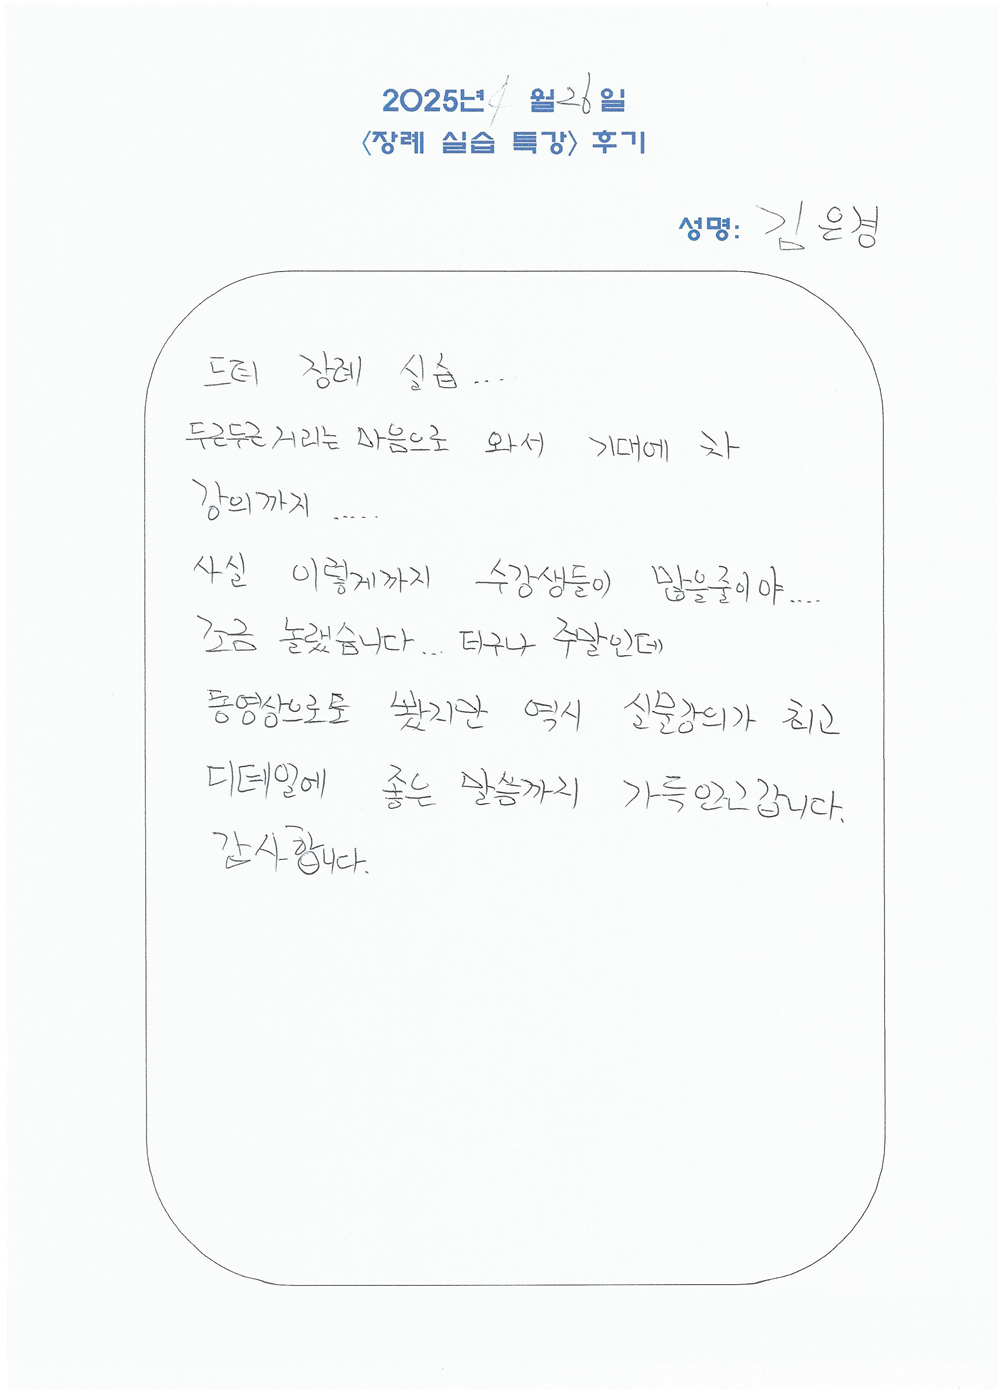 2025년 4월 26일
<장례 실습 특강> 후기
성명: 김은경
드뎌 장례 실습...
두근두근 거리는 마음으로 와서 기대에 차
강의까지 .....
사실 이렇게까지 수강생들이 많을줄이야....
조금 놀랬습니다... 더구나 주말인데
동영상으로도 봤지만 역시 실물강의가 최고
디테일에 좋은 말씀까지 가득안고갑니다.
감사합니다.